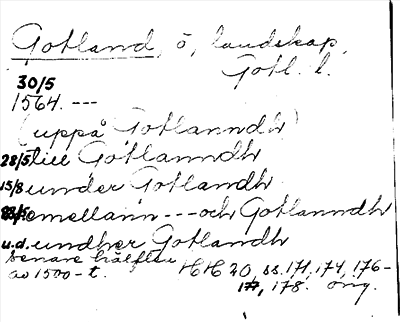 Gotland, ö, landskap,
Gotl. l.
30/5
1564. ---
(uppå Gotlanndh)
28/5 till Gotlanndh
15/8 under Gotlandh
emellann --- och Gotlanndh
u.d. undher Gotlandh
senare hälften
av 1500-t. HH 20, ss. 171, 174, 176-
177, 178. orig.